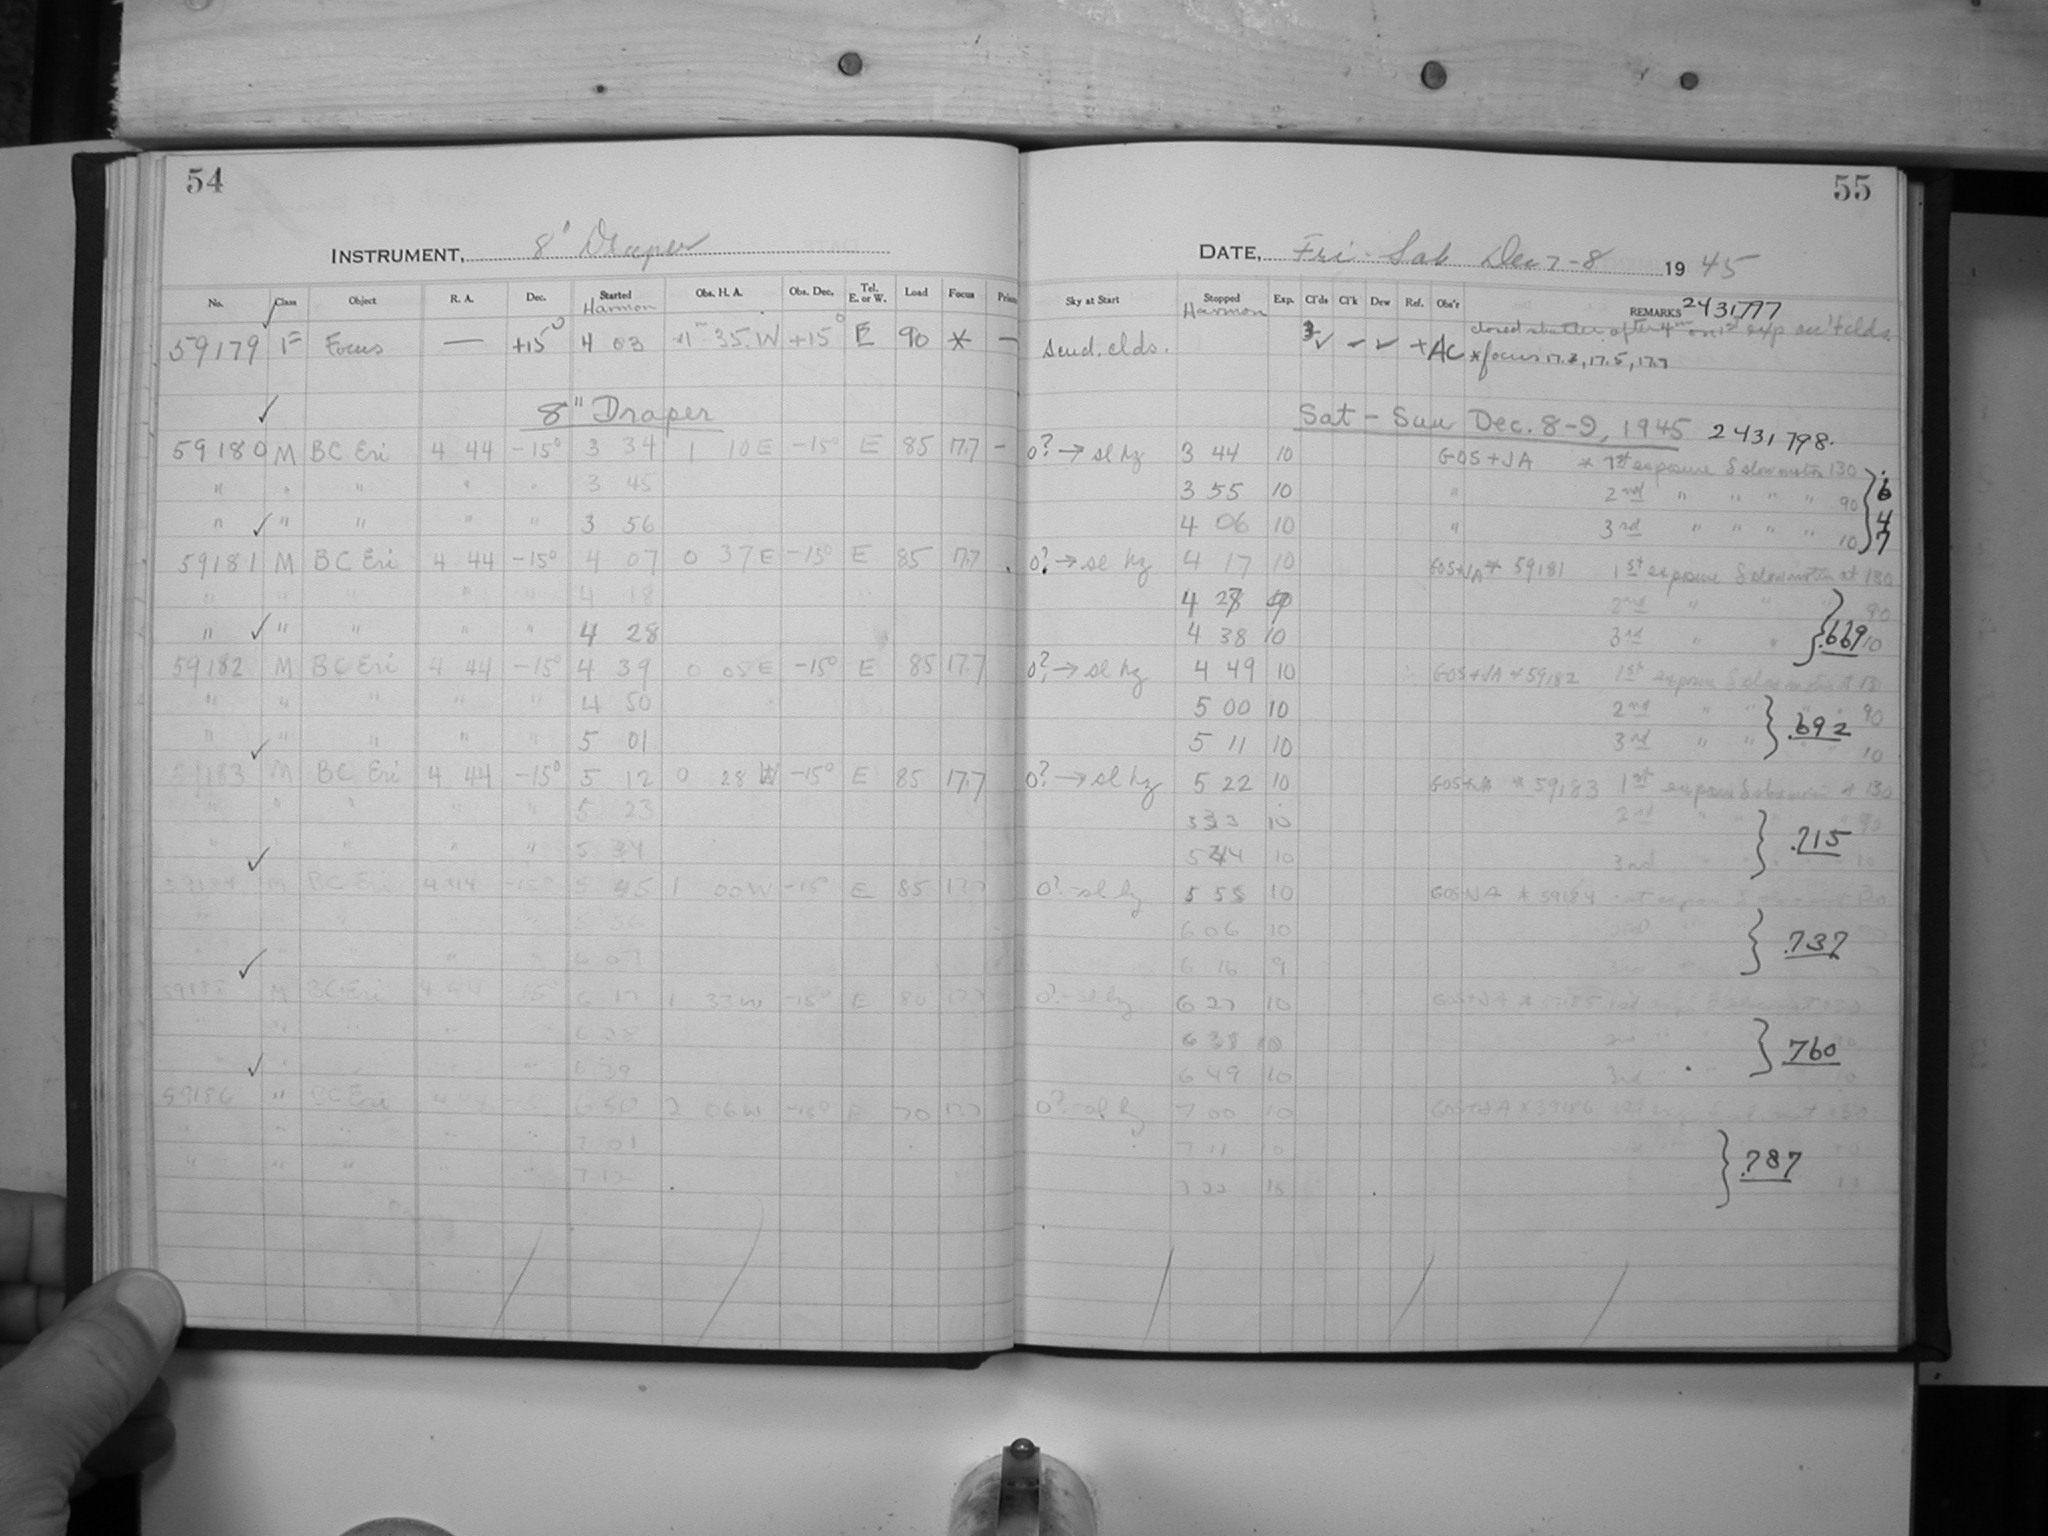 54
INSTRUMENT, 8" Draper
No. Class Object R. A. Dec. Started Harmon Obs. H. A. Obs. Dec. Tel. E. or W. Load Focus
59179 F Focus — +15° 4 03 35 W +15° E 90 * —
8" Draper
59180 M BC Eri 4 44 -15° 3 34 1 10 E -15° E 85 17.7 -
" " " " " 3 45
" " " " " 3 56
59181 M BC Eri 4 44 -15° 4 07 0 37 E -15° E 85 17.7
" " " " " 4 18
" " " " " 4 28
59182 M BC Eri 4 44 -15° 4 39 0 05 E -15° E 85 17.7
" " " " " 4 50
" " " " " 5 01
59183 M BC Eri 4 44 -15° 5 12 0 28 W -15° E 85 17.7
" " " " " 5 23
" " " " " 5 34
59184 M BC Eri 4 44 -15° 5 45 1 00 W -15° E 85 17.7
" " " " " 5 56
" " " " " 6 07
59185 M BC Eri 4 44 -15° 6 17 1 33 W -15° E 80 17.7
" " " " " 6 28
" " " " " 6 39
59186 " BC Eri 4 44 -15 6 50 2 06 W -15° E 70 17.7
" " " " " 7 01
" " " " 7 12
55
DATE, Fri - Sat Dec 7-8 1945
Sky at Start Stopped Harmon Exp. Cl'ds Cl'k Dew Ref. Obs'r REMARKS 2431797
closed shutter after 4m on 1st exp acc't clds.
Scud. clds. AC * focus 17.3, 17.5, 17.7
Sat - Sun Dec. 8-9, 1945 2431798.
0? → sl hz 3 44 10 GOS + JA * 1st exposure δ slow motion 130
3 55 10 " 2nd " " " " 90
4 06 10 " 3rd " " " " 10
.647
0? → sl hz 4 17 10 GOS+JA * 59181 1st exposure δ slow motion at 130
4 28 10 2nd " " " 90
4 38 10 3rd " " 10
.669
0? → sl hz 4 49 10 GOS+JA * 59182 1st exposure δ slow motion at 130
5 00 10 2nd " " 90
5 11 10 3rd " " 10
.692
0? → sl hz 5 22 10 GOS+JA * 59183 1st expos δ slow motion at 130
5 33 10 2nd " 90
5 44 10 3rd " 10
.715
0? - sl hz 5 55 10 GOS+JA * 59184
6 06 10 2nd
6 16 9 3rd
.737
0? - sl hz 6 27 10 GOS+JA * 59185 1st
6 38 10 2nd " 90
6 49 10 3rd " 10
.760
0? - sl hz 7 00 10 GOS+JA * 59186 130
7 11 10 90
7 22 10 10
.787